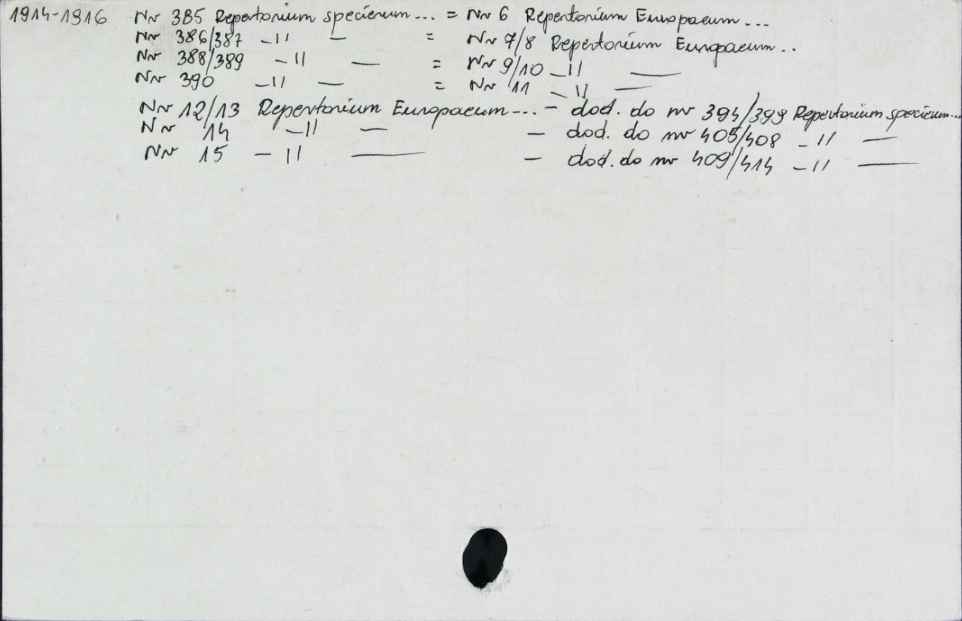 1914-1916 Nr 385 Repertorium specierum... = Nr 6 Repertorium Europaeum...
Nr 386/387 -11 — = Nr 7/8 Repertorium Europaeum..
Nr 388/389 -11 — = Nr 9/10 -11 —
Nr 390 -11 — = Nr 11 -11 —
Nr 12/13 Repertorium Europaeum... - dod. do nr 394/399 Repertorium specierum...
Nr 14 -11 — - dod. do nr 405/408 -11 —
Nr 15 -11 — - dod. do nr 409/414 -11 —